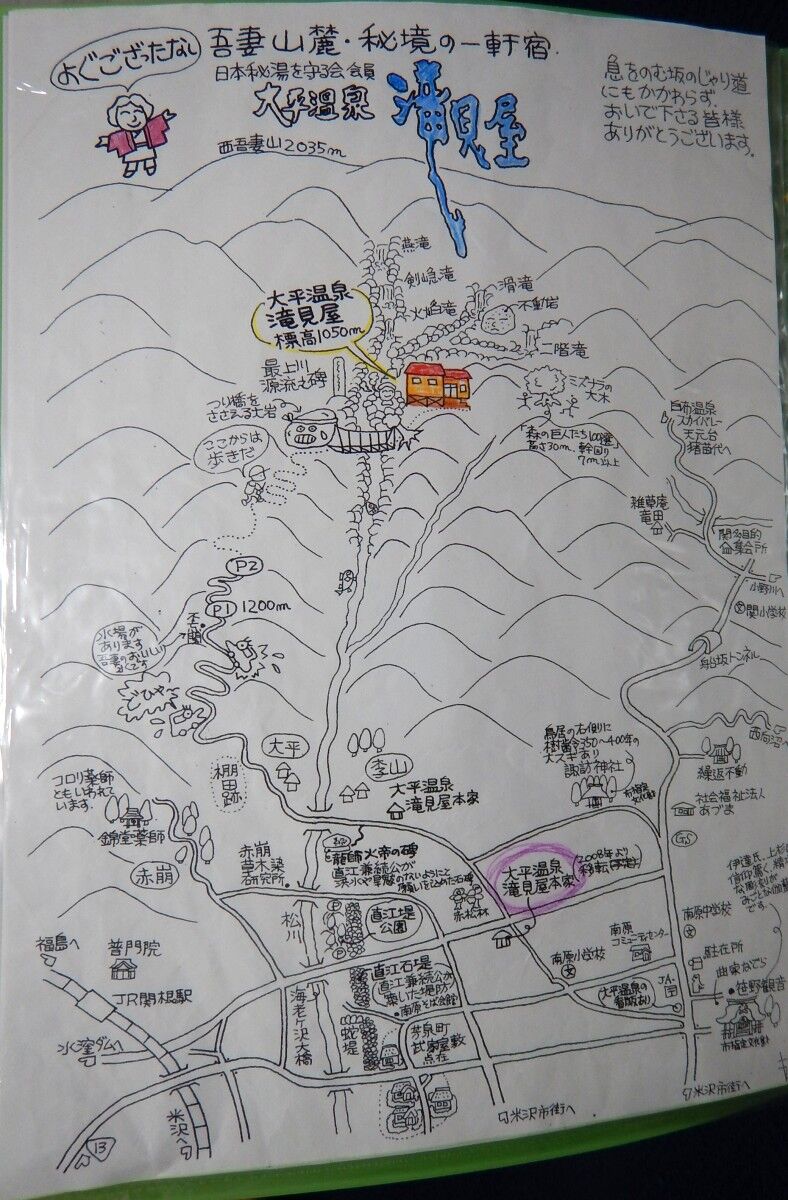 よぐござったなし
吾妻山麓・秘境の一軒宿
日本秘湯を守る会会員
大平温泉 滝見屋
息をのむ坂のじゃり道
にもかかわらず、
おいで下さる皆様
ありがとうございます。
西吾妻山2035m
燕滝
剣急滝
火焔滝
滑滝
不動岩
二階滝
大平温泉
滝見屋
標高1050m
最上川
源流之碑
つり橋を
ささえる土岩
ミズナラの
大木
「森の巨人たち100選」
高さ30m、幹回り
7m以上
ここからは
歩きだ
白布温泉
スカイバレー
天元台
猪苗代へ
雑草庵
竜田
関多目的
集会所
小野川へ
関小学校
舟台坂トンネル
西向沼へ
P2
P1 1200m
水場が
あります
吾妻のおいしい
水です
どひゃ〜
大平
李山
棚田跡
大平温泉
滝見屋本家
鳥居の右側に
樹齢今350〜400年の
大スギあり
諏訪神社
繰返不動
社会福祉法人
あづま
GS
コロリ薬師
ともいわれて
います。
錦堂薬師
赤崩
赤崩
草木染
研究所
龍師火帝の碑
直江兼続公が
洪水や旱魃のないようにと
願いを込めた石碑
赤松林
大平温泉
滝見屋本家
2008年より
移転(予定)
伊達氏、上杉
南原中学校
駐在所
南原
コミュニティセンター
南原小学校
笹野観音
JA
大平温泉の
看板あり
松川
P
直江堤
公園
直江石堤
直江兼続公が
築いた堤防
南原そば会館
P
蛇堤
芳泉町
武家屋敷
点在
海老ヶ沢大橋
福島へ
普門院
JR関根駅
水窪ダムへ
米沢へ
13
米沢市街へ
米沢市街へ